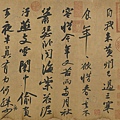 自我來黃州已過三寒
食年年欲惜春春去不
容惜今年又苦雨兩月秋
蕭瑟卧聞海棠花泥
汙燕支雪闇中偷負
去夜半真有力何殊少